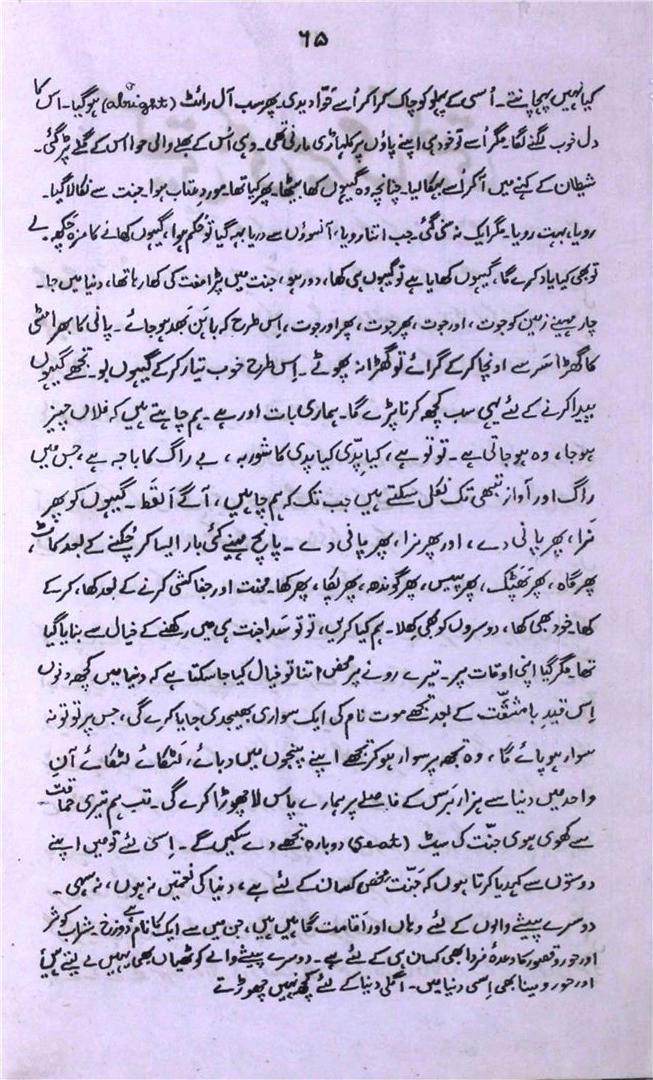 ۶۵
کیا نہیں پہچانتے۔ اُسی کے پہلو کو چاک کرا کر اُسے حوّا دیدی۔ پھر سب آل رائٹ (alright) ہوگیا۔ اس کا
دل خوب لگنے لگا مگر اُسے تو خود ہی اپنے پاؤں پر کلہاڑی مارنی تھی۔ وہی اُس کے بھلے والی حوا اس کے گلے پڑ گئی۔
شیطان کے کہنے میں آکر اُسے بہکا لیا۔ چنانچہ وہ گیہوں کھا بیٹھا۔ پھر کیا تھا مورد عتاب ہوا۔ جنت سے نکالا گیا۔
رویا، بہت رویا۔ مگر ایک نہ سُنی گئی۔ جب اتنا رویا، آنسوؤں سے دریا بہہ گیا تو حکم ہوا، گیہوں کھانے کا مزہ چکھ۔ لے
تو بھی کیا یاد کرے گا، گیہوں کھایا ہے تو گیہوں ہی کھا، دور ہو، جنت میں پڑا مفت کی کھا رہا تھا، دنیا میں جا۔
چار مہینے زمین کو جوت، اور جوت، پھر جوت، پھر اور جوت، اِس طرح کہ بالکن بَھد ہو جائے۔ پانی کا بھرا مٹی
کا گھڑا سَر سے اونچا کر کے گرائے تو گھڑا نہ پھوٹے۔ اِس طرح خوب تیار کر کے گیہوں بو۔ تجھے گیہوں
پیدا کرنے کے لئے یہی سب کچھ کرنا پڑے گا۔ ہماری بات اور ہے۔ ہم چاہتے ہیں کہ فلاں چیز
ہو جا، وہ ہو جاتی ہے۔ تو تو ہے، کیا پدّی کیا پدی کا شوربہ، بے راگ کا باجہ ہے، جس میں
راگ اور آواز تبھی تک نکل سکتے ہیں جب تک کہ ہم چاہیں، آگے اَلغَط۔ گیہوں کو پھر
نَرا، پھر پانی دے، اور پھر نرا، پھر پانی دے۔ پانچ مہینے کئی بار ایسا کر چُکنے کے بعد کاٹ،
پھر گاہ، پھر پَھٹک، پھر پیس، پھر گوندھ، پھر پکا، پھر کھا۔ محنت اور جفا کشی کرنے کے بعد کھا، کر کے
کھا۔ خود بھی کھا، دوسروں کو بھی کِھلا۔ ہم کیا کریں، تو تو سَدا جنت ہی میں رکھنے کے خیال سے بنایا گیا
تھا۔ مگر گیا اپنی اوقات پر۔ تیرے رونے پر محض اتنا تو خیال کیا جا سکتا ہے کہ دنیا میں کچھ دنوں
اِس قیدِ بامشقّت کے بعد تجھے موت نام کی ایک سواری بھیجدی جایا کرے گی، جس پر تو تو نہ
سوار ہو پائے گا، وہ تجھ پر سوار ہو کر تجھے اپنے پنجوں میں دبائے، لَٹکائے لٹکائے آنِ
واحد میں دنیا سے ہزار برس کے فاصلے پر ہمارے پاس لا چھوڑا کرے گی۔ تب ہم تیری حماقت
سے کھوئی ہوئی جنّت کی سیٹ (seat) دوبارہ تجھے دے سکیں گے۔ اِسی لئے تو میں اپنے
دوستوں سے کہدیا کرتا ہوں کہ جَنّت محض کسان کے لئے ہے، دنیا کی نعمتیں نہ ہوں، نہ سہی۔
دوسرے پیشے والوں کے لئے وہاں اور اقامت گاہیں ہیں، جن میں سے ایک کا نام ہے دوزخ۔ شراب کوثر
اور حور و قصور کا وعدۂ فردا بھی کسان ہی کے لئے ہے۔ دوسرے پیشے والے کوٹھیاں بھی یہیں لے لیتے ہیں
اور حور و مینا بھی اِسی دنیا میں۔ اگلی دنیا کے لئے کچھ نہیں چھوڑتے